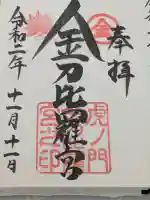 奉拝
金
金刀比羅宮
虎ノ門
宮之印
令和二年
十一月十一日